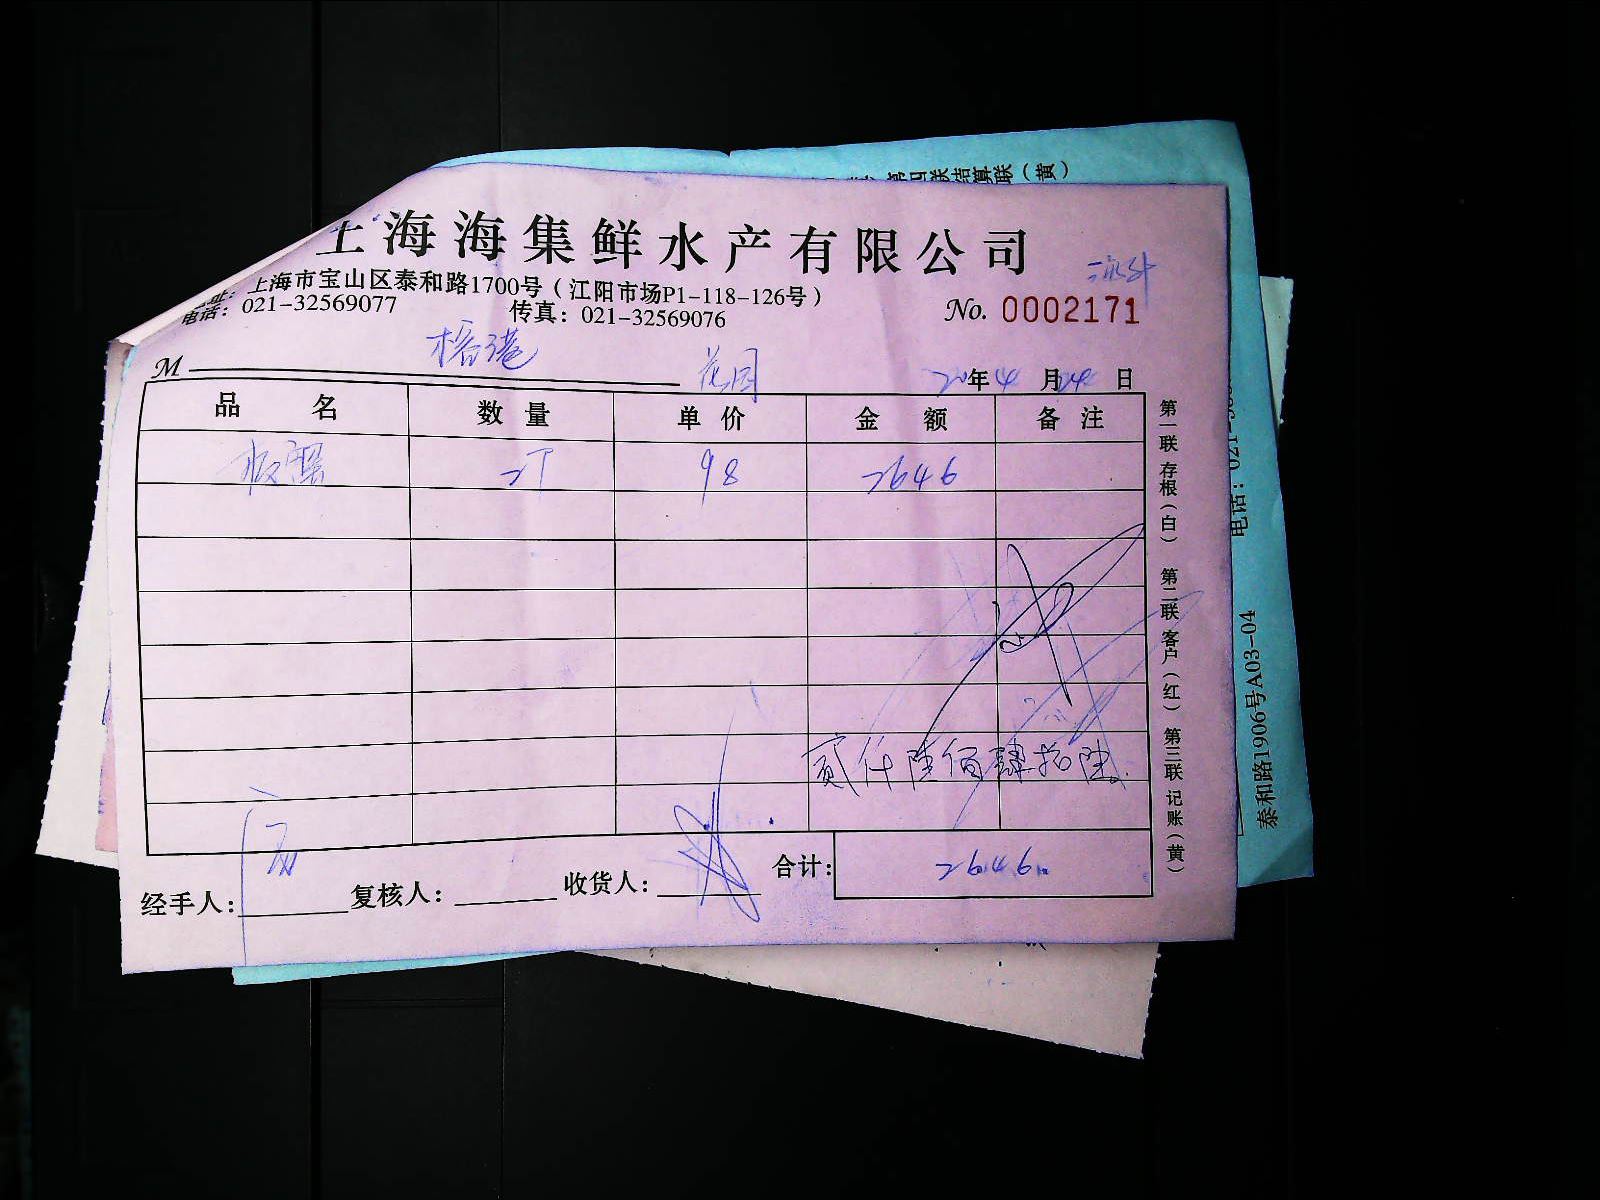 第四联结算联（黄）
上海海集鲜水产有限公司
地址：上海市宝山区泰和路1700号（江阳市场P1-118-126号）
电话：021-32569077 传真：021-32569076
No. 0002171
榕港
M 花园 20年4月24日
品名 数量 单价 金额 备注
98 2646
贰仟陆佰肆拾陆
合计： 2646
经手人： 复核人： 收货人：
第一联 存根（白） 第二联 客户（红） 第三联 记账（黄）
电话：021-
泰和路1906号A03-04